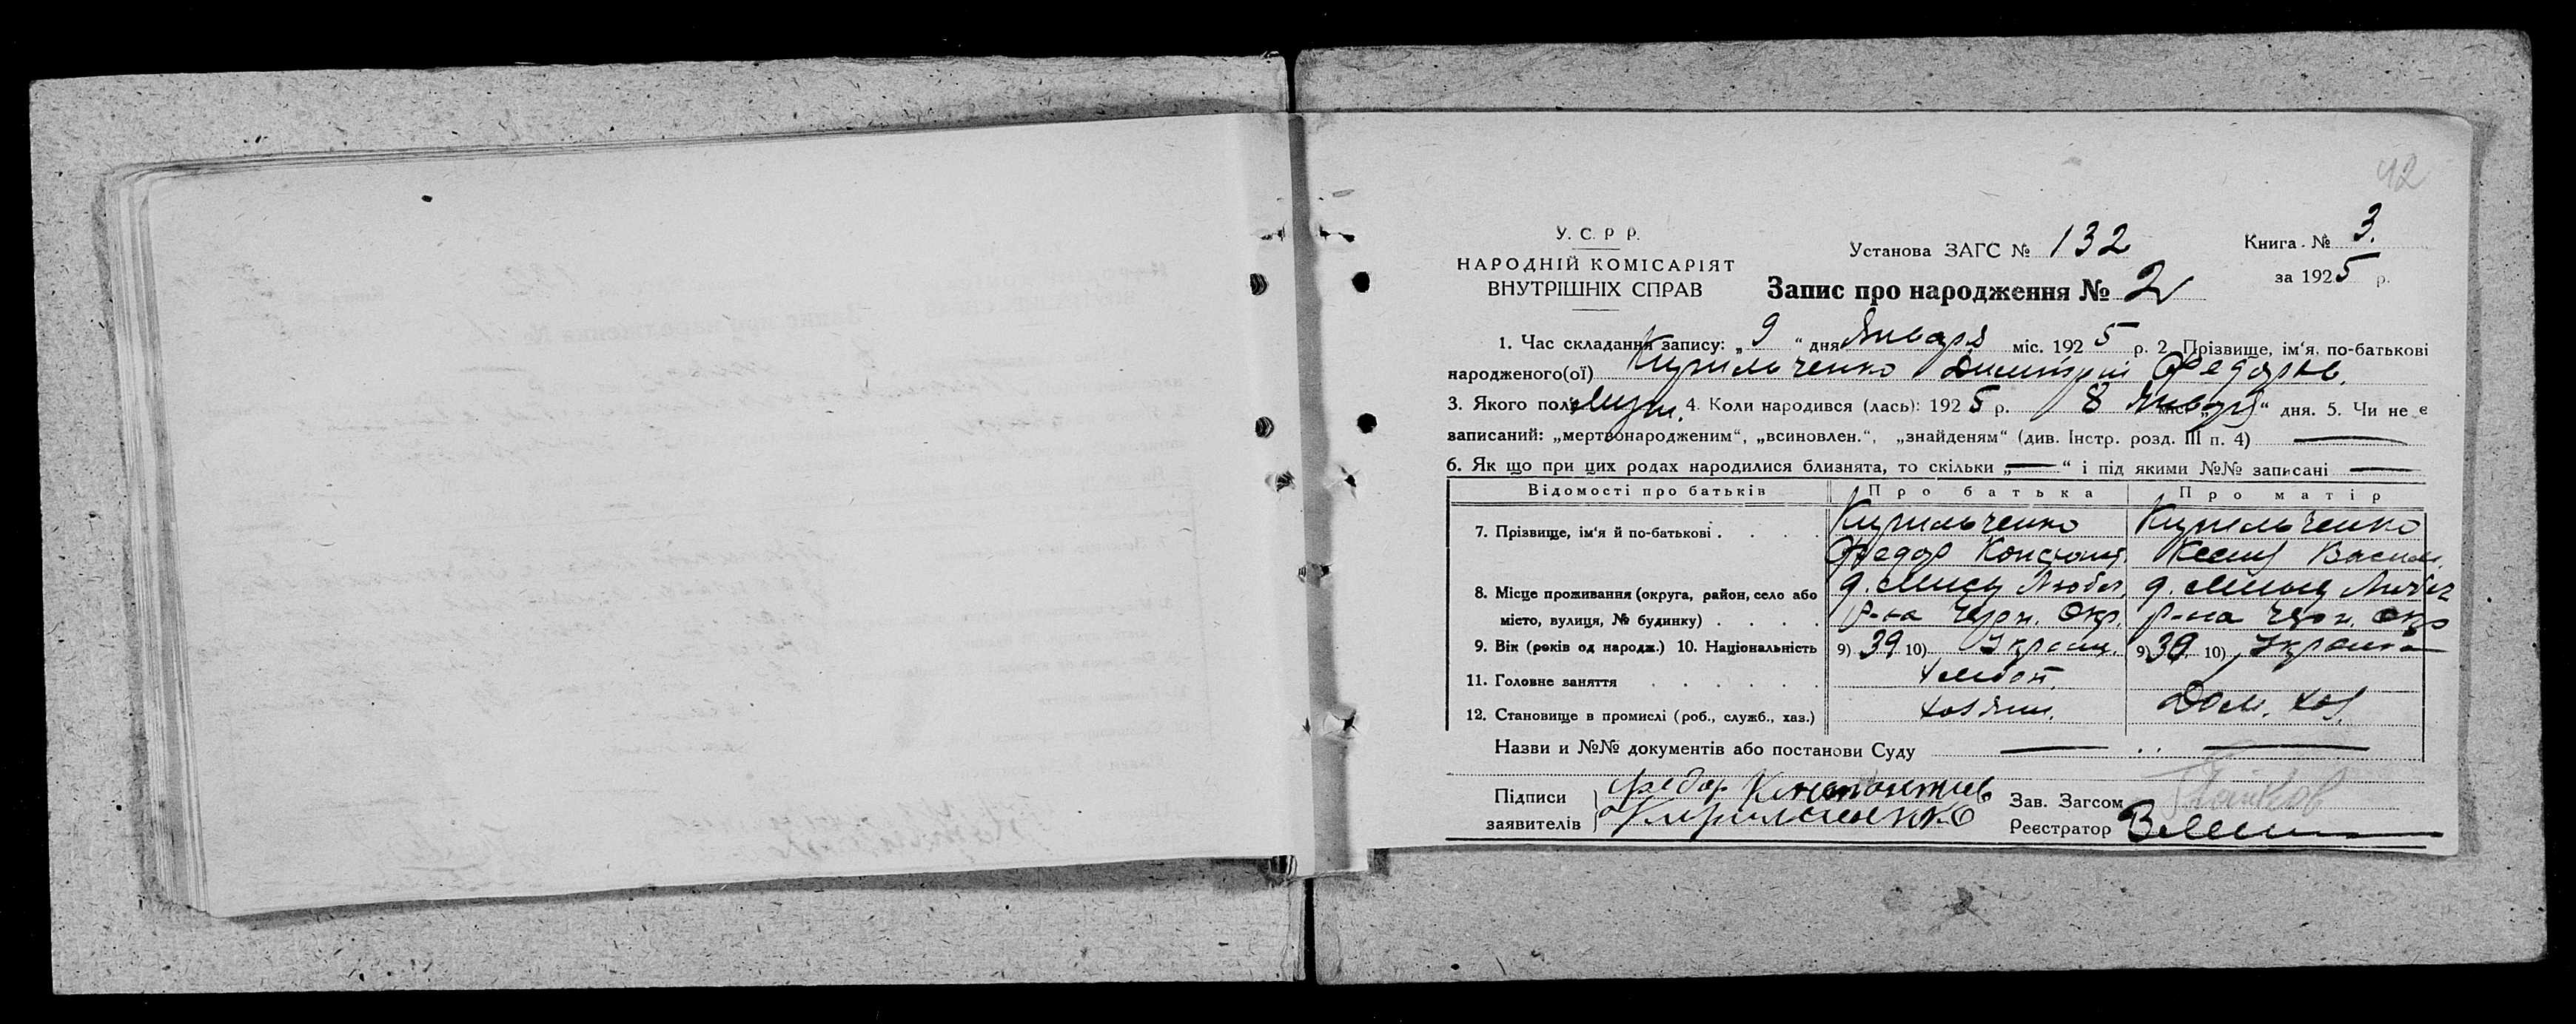 42
У. С. Р Р.
НАРОДНІЙ КОМІСАРІЯТ
ВНУТРІШНІХ СПРАВ
Установа ЗАГС № 132
Книга № 3.
за 1925 р.
Запис про народження № 2
1. Час складання запису: „9“ дня Января міс. 1925 р. 2. Прізвище, ім‘я, по-батькові
народженого(ої) Кирильченко Димитрий Федоров.
3. Якого полу Муж. 4. Коли народився (лась): 1925 р. 8 Января “ дня. 5. Чи не є
записаний: „мертвонародженим“, „всиновлен.“, „знайденям“ (див. Інстр. розд. III п. 4) —
6. Як що при цих родах народилися близнята, то скільки „—“ і під якими №№ записані —
Відомості про батьків Про батька Про матір
7. Прізвище, ім‘я й по-батькові . . . . Кирильченко Кирильченко
Федор Констант. Васил.
8. Місце проживання (округа, район, село або д. Любеч. д. Любеч
місто, вулиця, № будинку) . . . . р-на Черн. Окр. р-на Черн. Окр
9. Вік (років од народж.) 10. Національність 9) 39 10) Украин. 9) 39 10) Украинка
11. Головне заняття . . . . . . Хлебоп.
12. Становище в промислі (роб., служб., хаз.) хозяин. Дом. хоз.
Назви и №№ документів або постанови Суду — . . —
Підписи Федор Константинов Зав. Загсом
заявителів Кирильченко Реєстратор